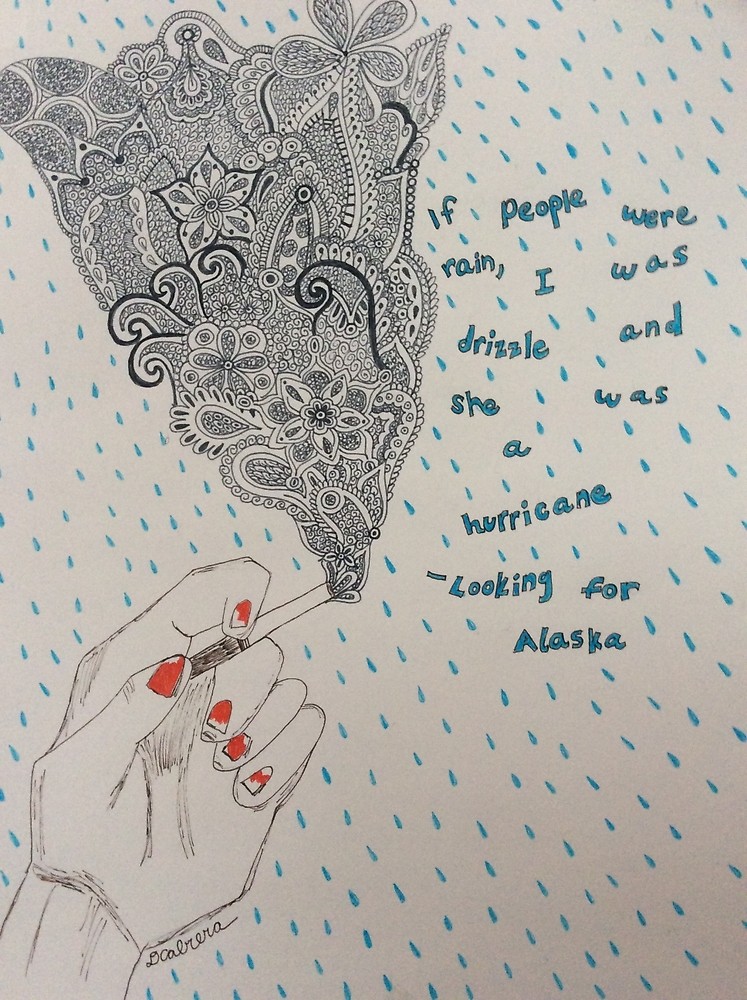 If people were
rain, I was
drizzle and
she was
a
hurricane
-Looking for
Alaska
DCabrera